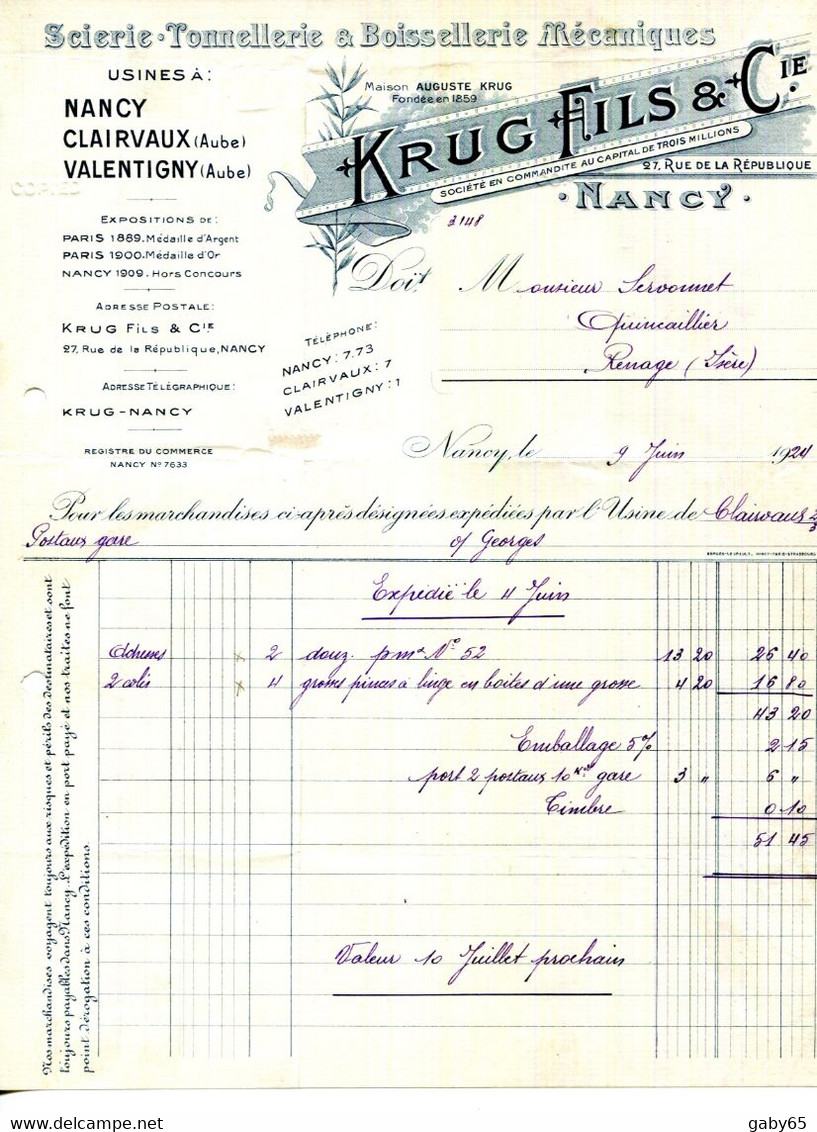 Scierie · Tonnellerie & Boissellerie Mécaniques
USINES À :
NANCY
CLAIRVAUX (Aube)
VALENTIGNY (Aube)
Maison AUGUSTE KRUG
Fondée en 1859
KRUG FILS & CIE.
SOCIÉTÉ EN COMMANDITE AU CAPITAL DE TROIS MILLIONS
27, RUE DE LA RÉPUBLIQUE
· NANCY ·
EXPOSITIONS DE :
PARIS 1889. Médaille d'Argent
PARIS 1900. Médaille d'Or
NANCY 1909. Hors Concours
3148
Doit Monsieur Servonnet
Quincaillier
Renage (Isère)
ADRESSE POSTALE :
KRUG FILS & CIE
27, Rue de la République, NANCY
TÉLÉPHONE :
NANCY : 7.73
CLAIRVAUX : 7
VALENTIGNY : 1
ADRESSE TÉLÉGRAPHIQUE :
KRUG-NANCY
REGISTRE DU COMMERCE
NANCY N° 7633
Nancy, le 9 Juin 1924
Pour les marchandises ci-après désignées expédiées par l'Usine de Clairvaux
Postaux gare o/ Georges
BERGER-LEVRAULT, NANCY-PARIS-STRASBOURG
Expédié le 4 Juin
Adresses x 2 douz. pma No 52 13 20 26 40
2 colis x 4 grosses pinces à linge en boîtes d'une grosse 4 20 16 80
43 20
Emballage 5% 2 15
port 2 postaux 10 Kos gare 3 " 6 "
Timbre 0 10
51 45
Valeur 10 Juillet prochain
Nos marchandises voyagent toujours aux risques et périls des destinataires et sont
toujours payables dans Nancy. L'expédition en port payé et nos traites ne font
point dérogation à ces conditions.
www.delcampe.net
gaby65